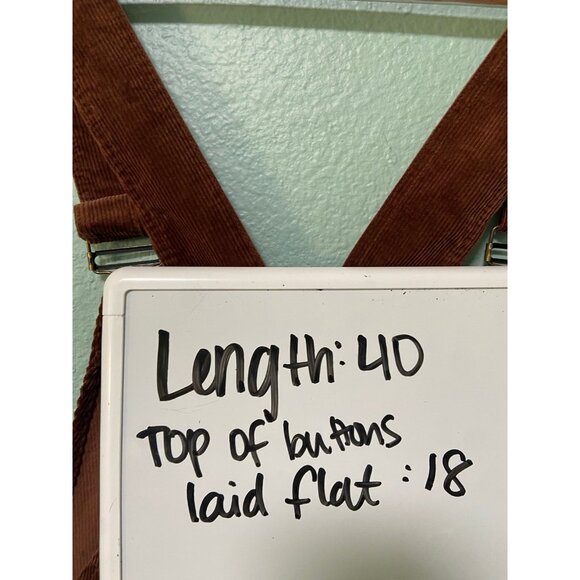 Length: 40
Top of buttons
laid flat : 18